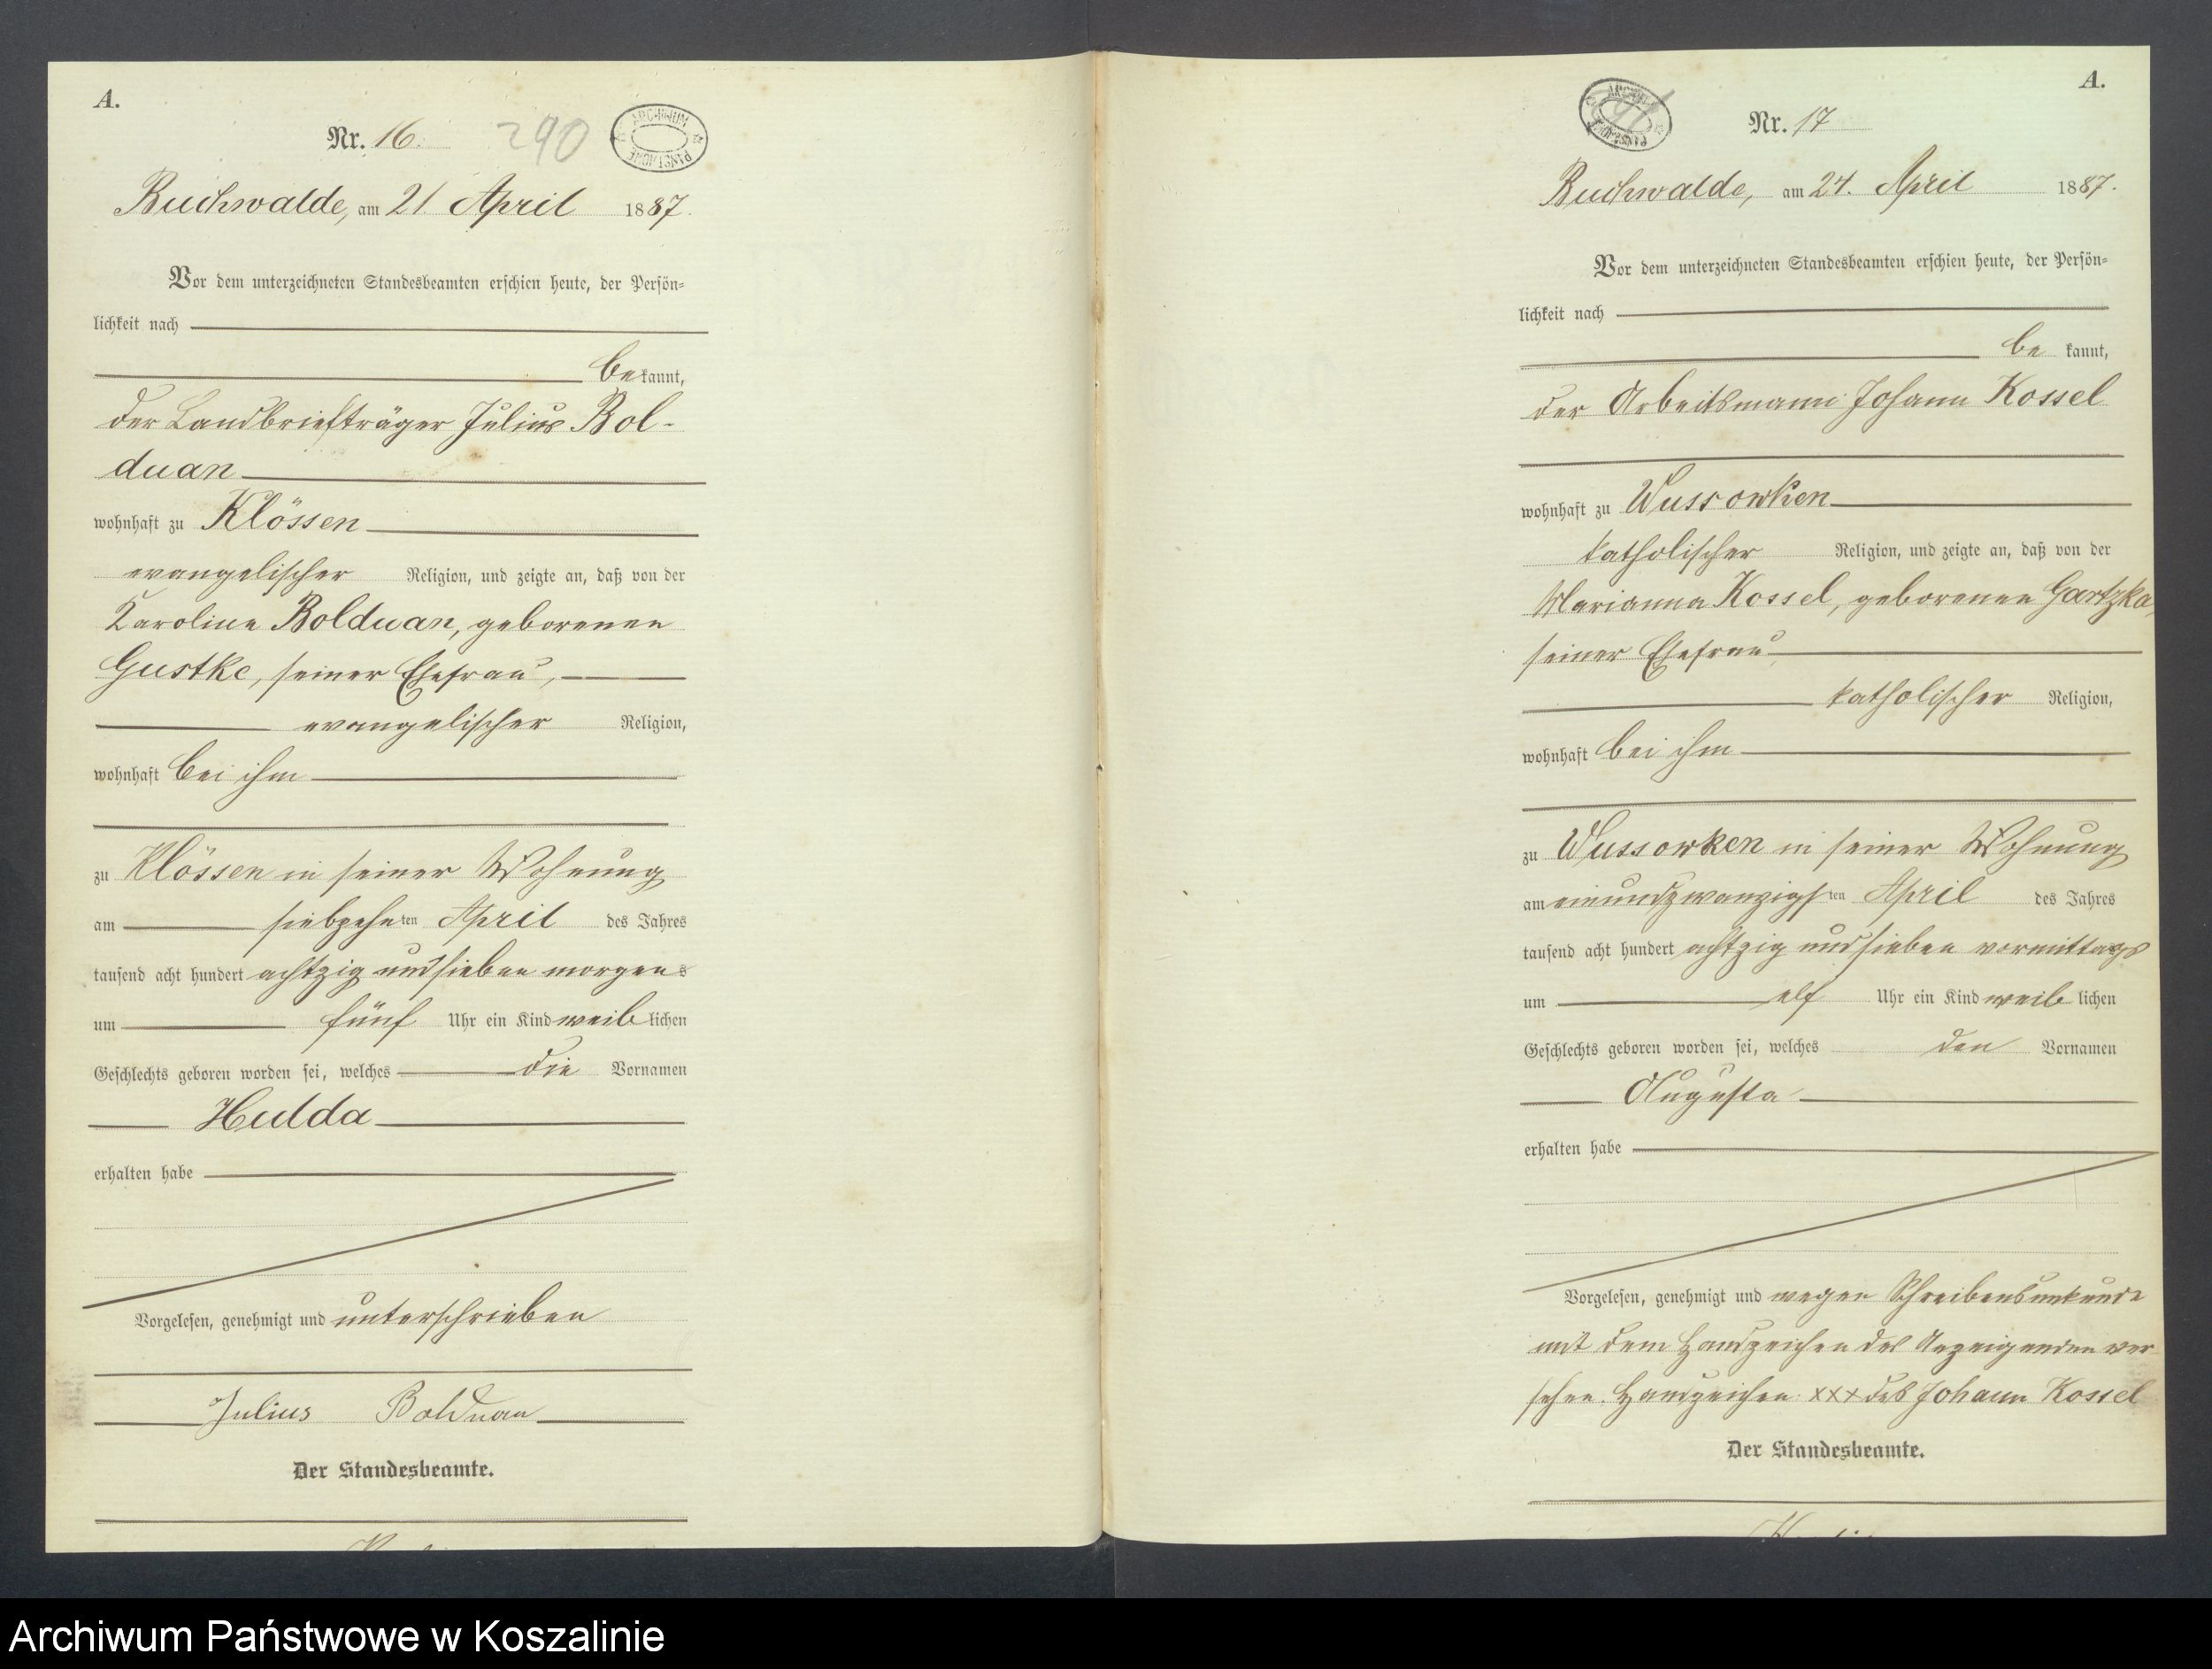 A.
Nr. 16.
290
ARCHIWUM PAŃSTWOWE
Buchwalde, am 21. April 1887.
Vor dem unterzeichneten Standesbeamten erschien heute, der Persön-
lichkeit nach
bekannt,
der Landbriefträger Julius Bol-
duan
wohnhaft zu Klössen
evangelischer Religion, und zeigte an, daß von der
Karoline Bolduan, geborenen
Gustke, seiner Ehefrau,
evangelischer Religion,
wohnhaft bei ihm
zu Klössen in seiner Wohnung
am siebzehnten April des Jahres
tausend acht hundert achtzig und sieben morgens
um fünf Uhr ein Kind weiblichen
Geschlechts geboren worden sei, welches die Vornamen
Hulda
erhalten habe
Vorgelesen, genehmigt und unterschrieben
Julius Bolduan
Der Standesbeamte.
A.
ARCHIWUM PAŃSTWOWE
Nr. 17
Buchwalde, am 24. April 1887.
Vor dem unterzeichneten Standesbeamten erschien heute, der Persön-
lichkeit nach
bekannt,
der Arbeitsmann Johann Kossel
wohnhaft zu Wussowken
katholischer Religion, und zeigte an, daß von der
Marianna Kossel, geborenen Gartzka,
seiner Ehefrau,
katholischer Religion,
wohnhaft bei ihm
zu Wussowken in seiner Wohnung
am einundzwanzigsten April des Jahres
tausend acht hundert achtzig und sieben vormittags
um elf Uhr ein Kind weiblichen
Geschlechts geboren worden sei, welches den Vornamen
Augusta
erhalten habe
Vorgelesen, genehmigt und wegen Schreibensunkunde
mit dem Handzeichen des Anzeigenden ver-
sehen. Handzeichen xxx des Johann Kossel
Der Standesbeamte.
Archiwum Państwowe w Koszalinie